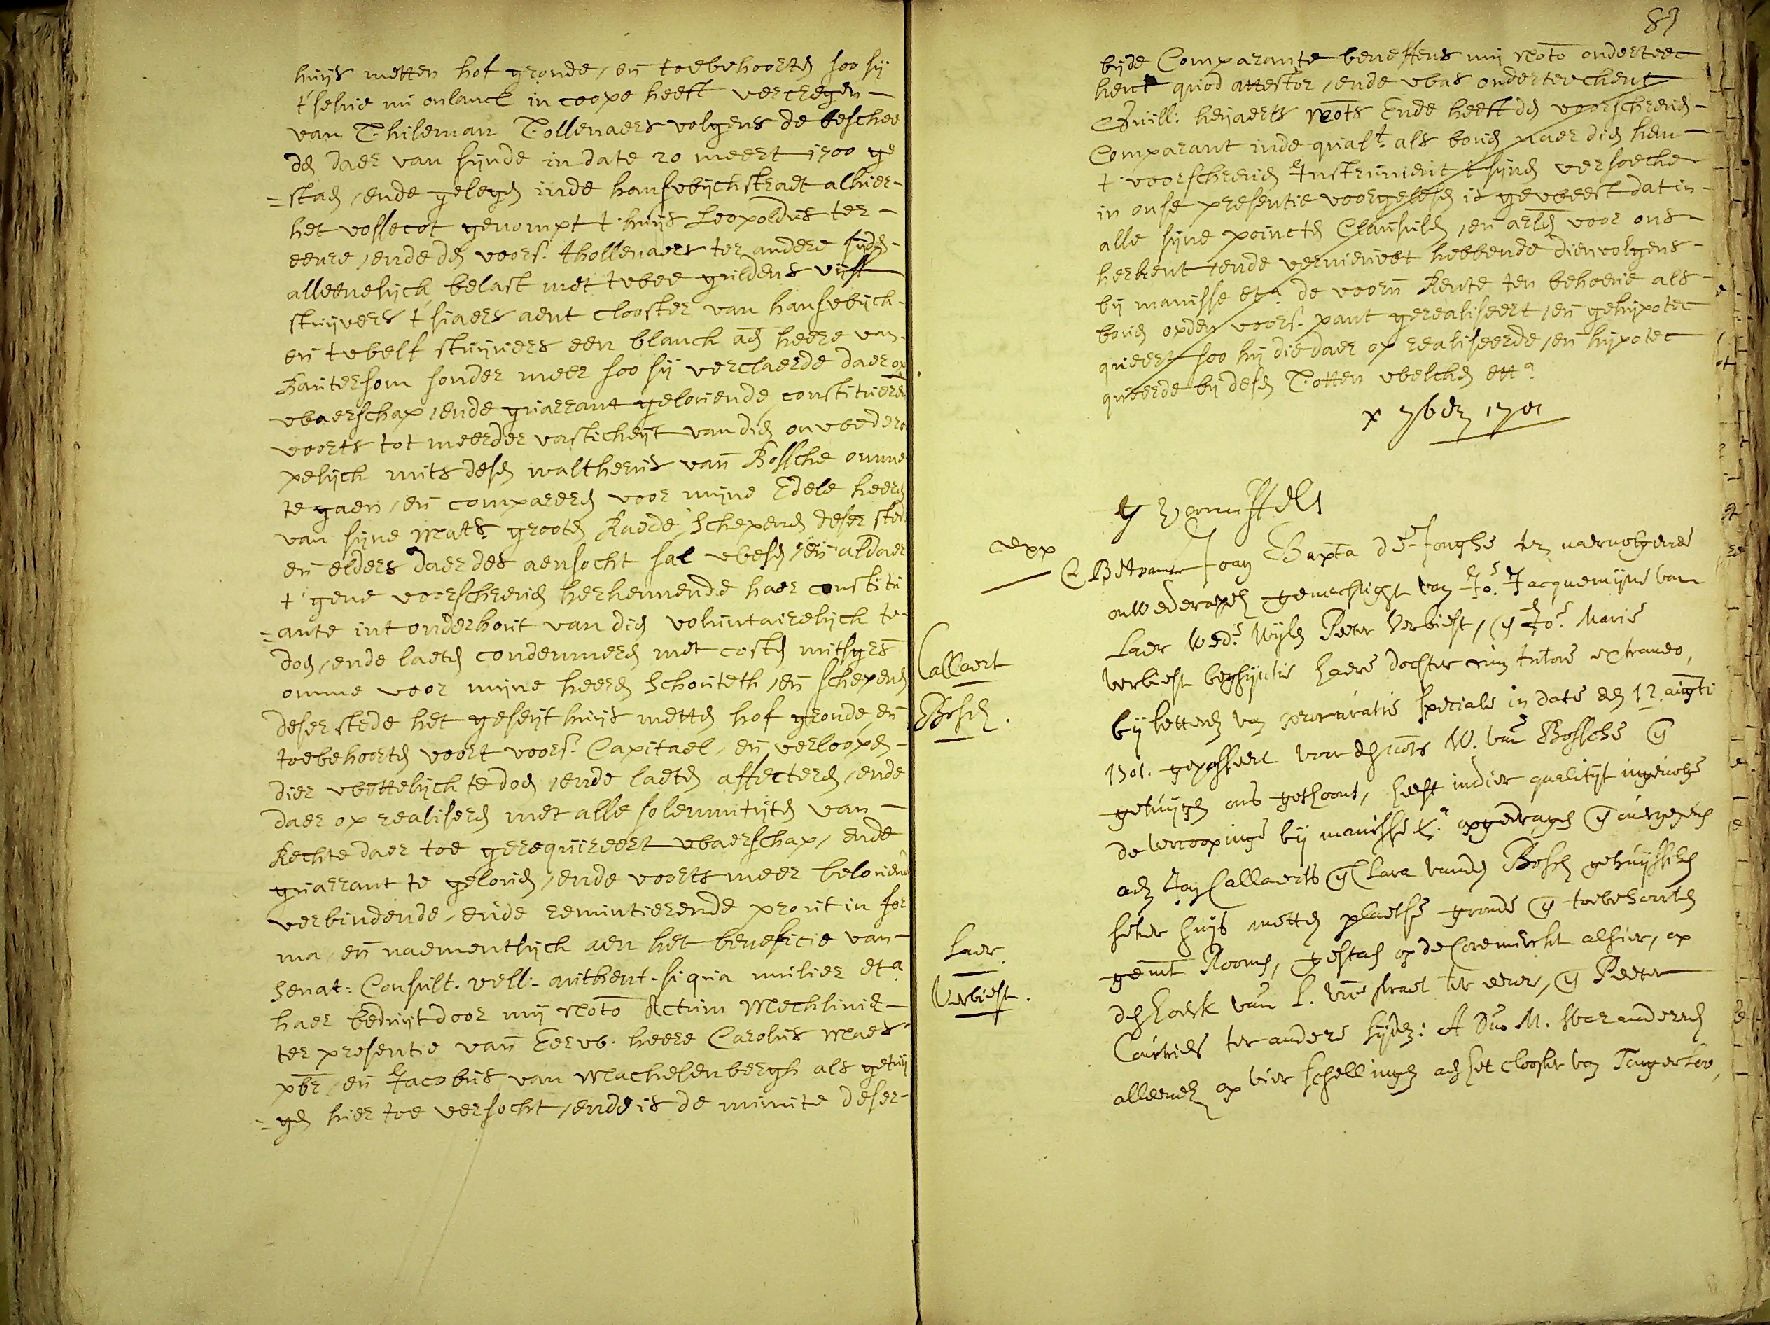 huijs metten hof gronde, en toebehoorten soo sij
t'selve nu onlanck in coope heeft vercregen
van Thileman Tollenaers volgens de beschee
den daer van sijnde in date 20 meert 1700 ge
staen, ende gelegen inde hanswijckstraet alhier
het vossecot genompt t'huijs Leopoldus ter
eenre, ende den voors. thollenaers ter andere sijden
alleenelijck belast met twee guldens vijff
stuijvers t'siaers aent clooster van hanswijck
en twelf stuijvers een blanck aen heere van
hantersom sonder meer soo sij verclaerde daer op
waerschap, ende guarrant gelovende, constitueren
voorts tot meerder vasticheijt van dien onwederro
pelijck mits desen waltherus van Bossche omme
te gaen, en compareren voor mijne Edele heeren
van sijne Mats. grooten Raede, Schepenen deser stede
en elders daer des aensocht sal wesen, en aldaer
t'gene voorschreven herkennende haer constitu
ante int onderhout van dien voluntairelijck te
doen, ende laeten condemneren met costen mitsgrs
omme voor mijne heeren Schouteth, en schepenen
deser stede het geseijt huijs metten hof gronde, en
toebehoorten voort voors. Capitael, en verloopen
dier wettelijck te doen, ende laeten affecteren, ende
daer op realiseren met alle solemniteijten van
Rechte daer toe gerequireert waerschap, ende
guarrant te geloven, ende voorts meer belovende
verbindende, ende renuntierende prout in for
ma, en naementlijck aen het beneficie van
Senat: Consult. vell: authent. si qua mulier eta.
haer beduijt door mij Noto Actum Mechlinie
ter presentie van Eerw. heere Carolus Maes
pbr, en Jacobus van Machelenbergh als getuij
gen hier toe versocht, ende is de minute deser
83
bijde Comparante beneffens mij Noto onderteec
kent quod attestor, ende was onderteeckent
Guill: heijaerts Nots Ende heeft den voorschreven
Comparant inde qualt. als boven naer dien hem
t'voorschreven Instrument t'sijnen versoecke
in onse presentie voorgelesen is geweest dat in
alle sijne poincten Clausulen, en arlen voor ons
herkent, ende vernieuwt hebbende dienvolgens
bij manisse eta. de voorn Rente ten behoeve als
boven op den voors. pant gerealiseert, en gehijpotec
queert soo hij die daer op realiseerde, en hijpotec
queerde bij desen Totten welcken etta.
x 7ber 1701
Joan Bapta de Jonghe ten naervolgende
onwederroepelijck gemachticht van Jo. Jacquemijne van
Laer wede. wijlen Peeter Verbiest, en Jo. Marie
verbiest beghijntie haere dochter cum tutore extraneo,
bij letteren van procuratie speciale in date den 12 augti
1701. gepasseert voor den nots W. van Bossche en
getuijgen ons gethoont, heeft in dier qualitijt ingevolge
de vercoopinge bij manisse &a. opgedragen en overgegeven
aen Jan Callaerts en Clara vanden Bosch gehuijsschen
seker huijs metten plaetse gronde en toebehoorten
gent Rooms, gestaen op de Coremerckt alhier, op
den hoeck van L. Vrouwe straet ter eenre, en Peeter
ter andere sijden:
alleenen op vier schellingen aen het clooster van Tongerloo,
Callaert
Bosch.
Laer.
Verbiest.